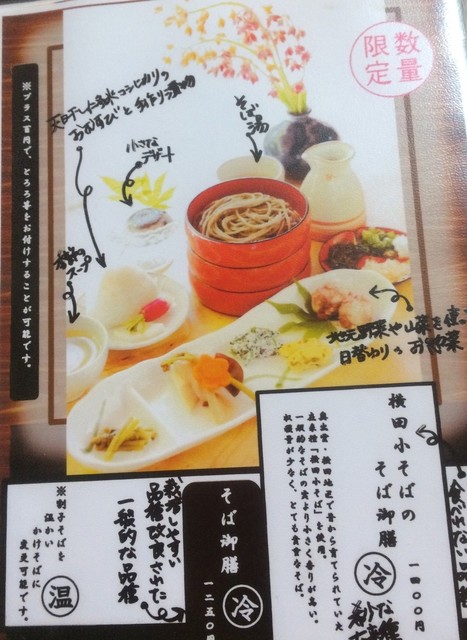 数量
限定
※プラス百円で、とろろ等をお付けすることが可能です。
天日干した
コシヒカリの
おむすびと手作り漬物
小さな
デザート
そば湯
スープ
地元野菜や山菜を使
日替わりのお野菜
横田小そばの
そば御膳
一四〇〇円
冷
奥出雲・横田地区で昔から育てられていた
在来種「横田小そば」を使用。
一般的なそばの実より小さく香りが高い。
収穫量が少なく、とても貴重なそば。
食べれない
そば御膳
一二五〇円
冷
栽培しやすい
品種改良された
一般的な品種
※割子そばを
温かい
かけそばに
変更可能です。
温